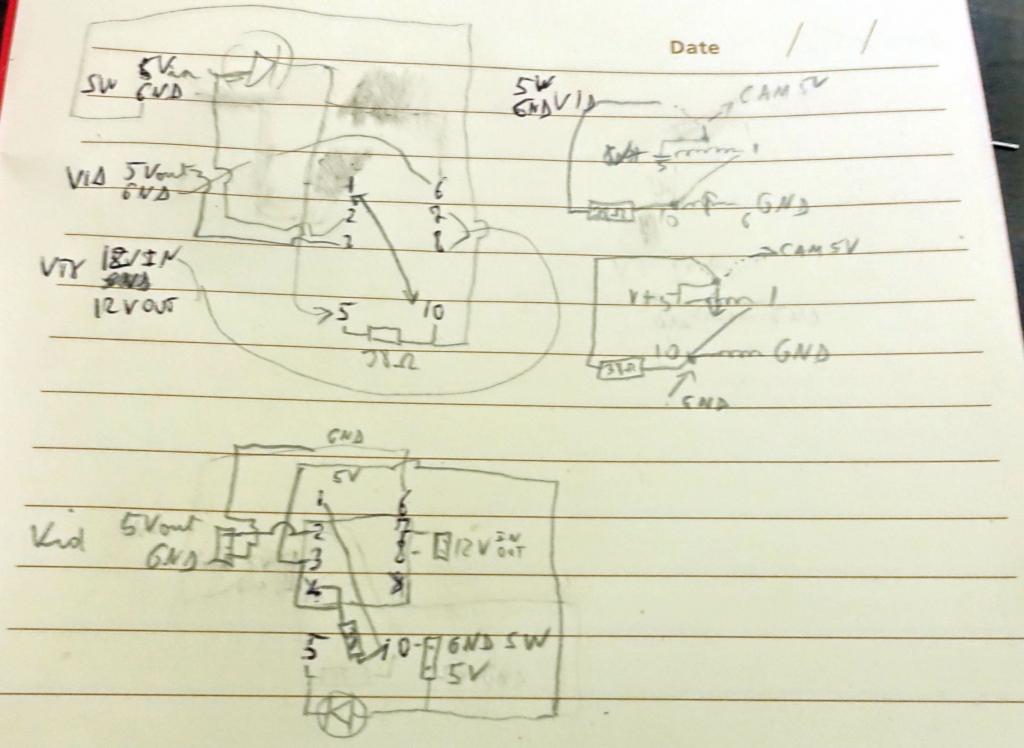 Date / /
SW 5Vin
GND
Vid 5Vout
GND
18VIN
12VOUT
1 6
2 7
3 8
5 10
38Ω
SW
GND Vid
CAM 5V
1
5
10 6 GND
CAM 5V
V+5 1
10 GND
38Ω
GND
GND
5V
Vid 5Vout
GND
1 6
2 7
3 8
4
12V IN
OUT
5 10
GND SW
5V